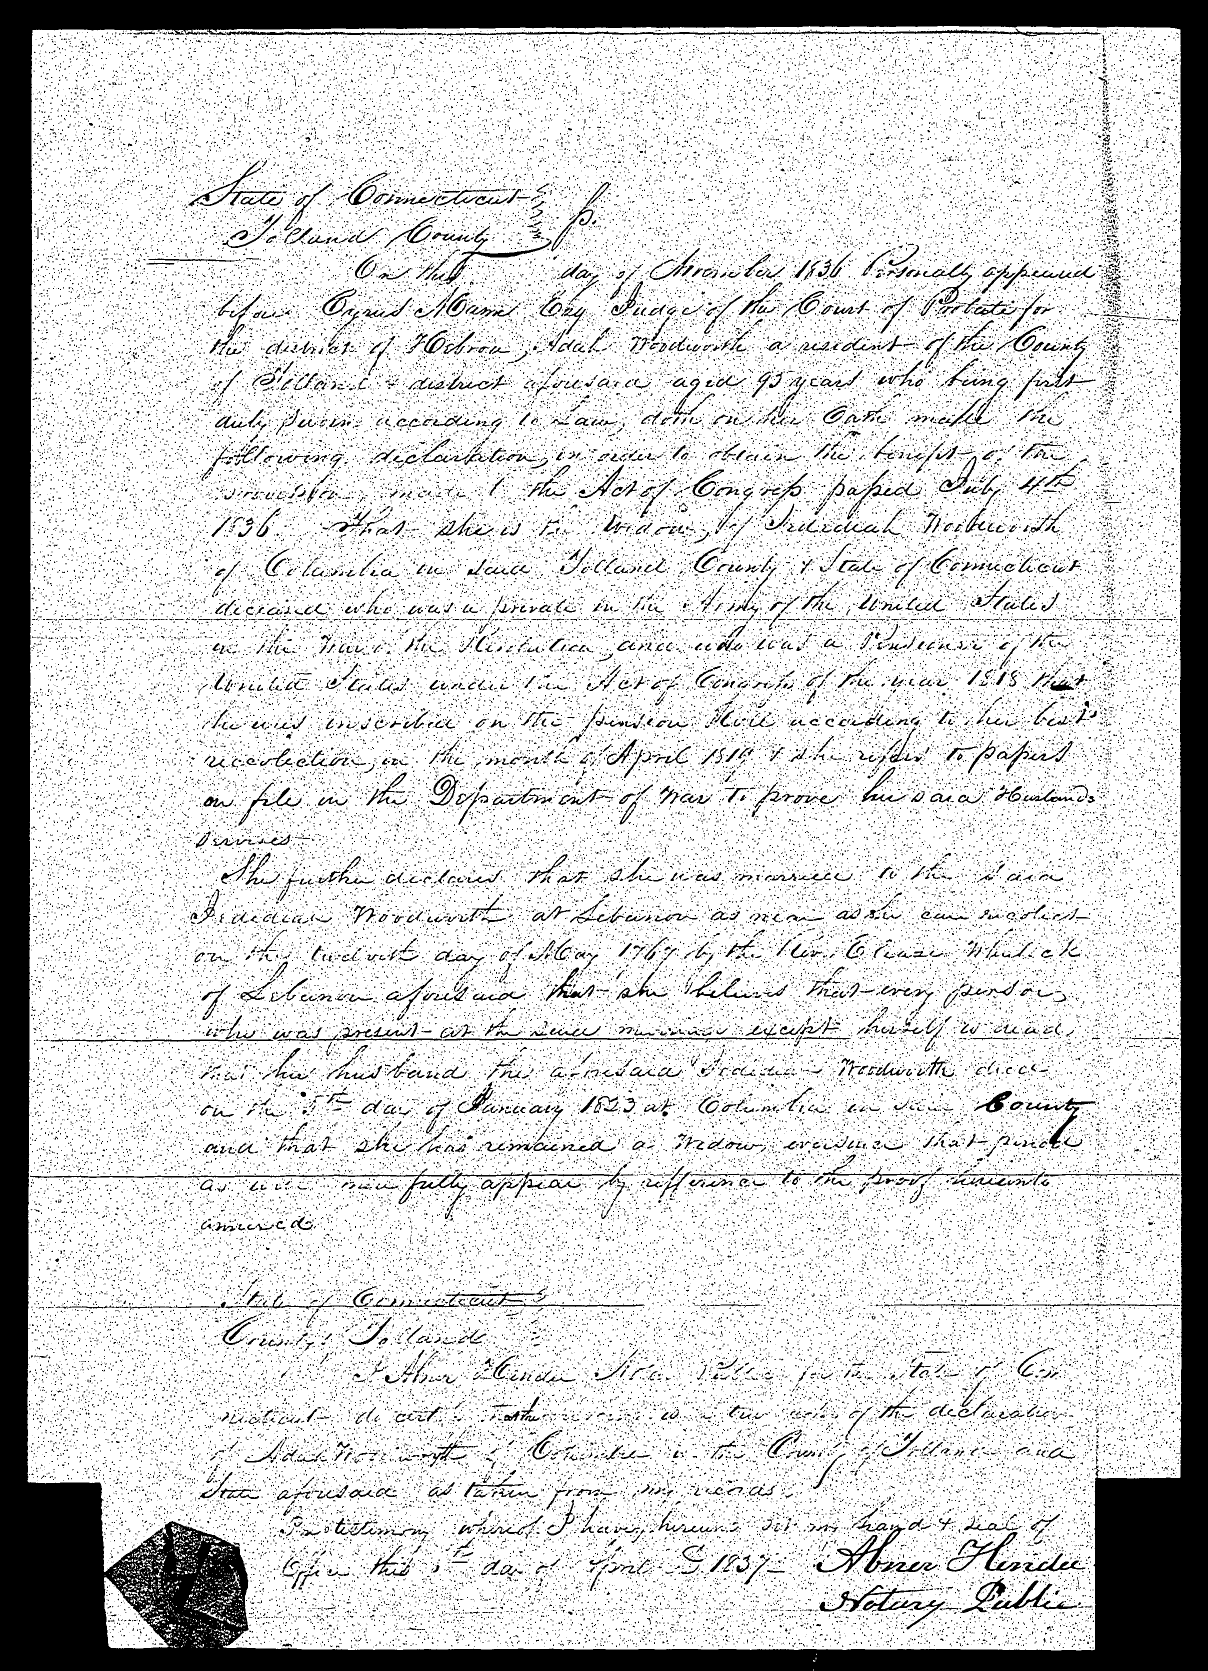 State of Connecticut
Tolland County ss.
On this day of November 1836 Personally appeared
before Cyrus Mann Esq Judge of the Court of Probate for
the district of Hebron, Adah Woodworth a resident of the County
of Tolland & district aforesaid aged 95 years who being first
duly sworn according to Law, doth on her Oath make the
following declaration, in order to obtain the benefit of the
provision made by the Act of Congress passed July 4th
1836. That she is the Widow, of Jedediah Woodworth
of Columbia in said Tolland County & State of Connecticut
deceased who was a private in the Army of the United States
in the War of the Revolution, and who was a Pensioner of the
United States under the Act of Congress of the year 1818 that
he was inscribed on the pension Roll according to her best
recolection, in the month of April 1819 & she refers to papers
on file in the Department of War to prove her said Husbands
services
She further declares that she was married to the said
Jedediah Woodworth at Lebanon as near as she can recolect
on the twelvth day of May 1767 by the Rev. Eleazer Whelick
of Lebanon aforesaid that she believes that every person,
who was present at the said marriage except herself is dead,
that her husband the aforesaid Jedediah Woodworth died
on the 5th day of January 1823 at Columbia in said County
and that she has remained a Widow, ever since that period
as will more fully appear by refference to the proof hereunto
annexed
State of Connecticut
County of Tolland
I Abner Hendee Notary Public for the State of Con
necticut do certify that the is a true copy of the declaration
of Adah Woodworth of Columbia in the County of Tolland and
State aforesaid as taken from my records.
In testimony whereof I have hereunto set my hand & seal of
Office this 5th day of April 1837 Abner Hendee
Notary Public